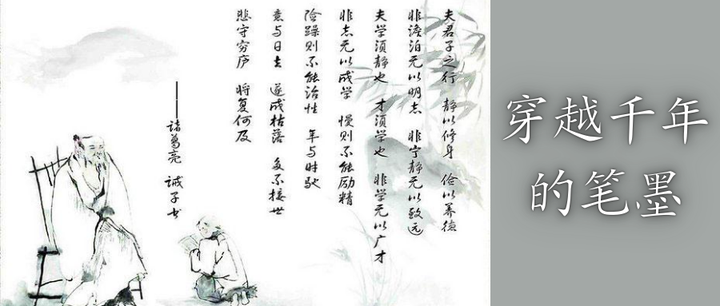 夫君子之行 静以修身 俭以养德
非澹泊无以明志 非宁静无以致远
夫学须静也 才须学也 非学无以广才
非志无以成学 慢则不能励精
险躁则不能治性 年与时驰
意与日去 遂成枯落 多不接世
悲守穷庐 将复何及
——诸葛亮 诫子书
穿越千年
的笔墨